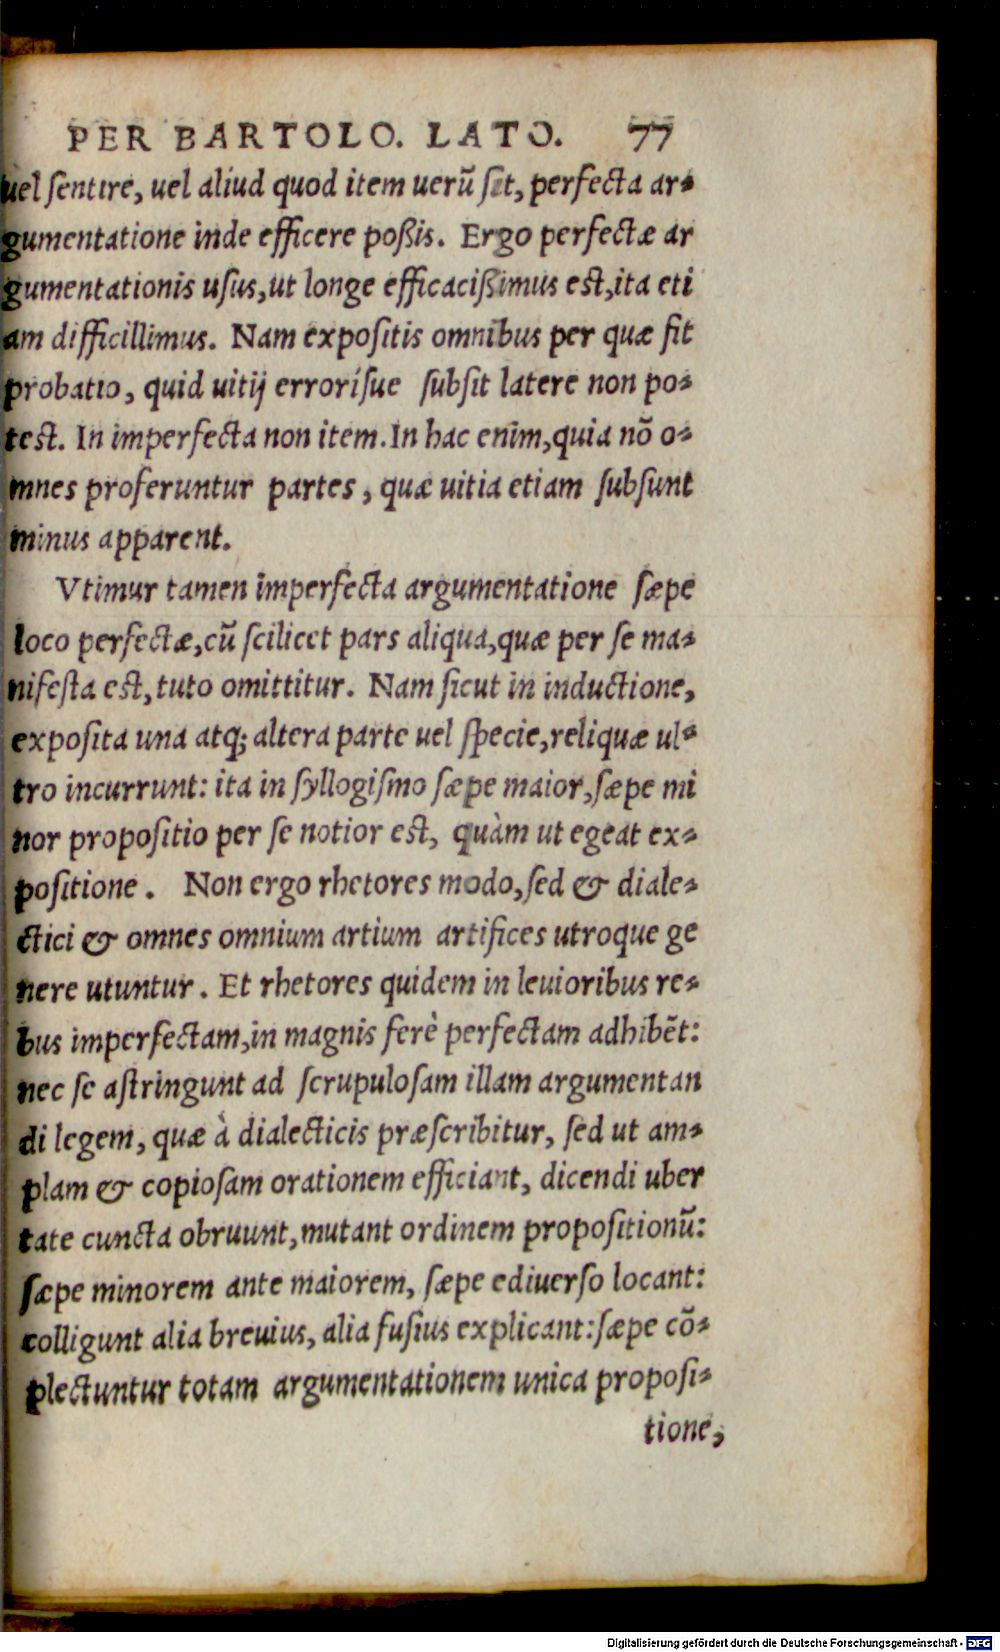 PER BARTOLO. LATO. 77
uel sentire, uel aliud quod item uerū sit, perfecta ar-
gumentatione inde efficere poßis. Ergo perfectæ ar
gumentationis usus, ut longe efficacißimus est, ita eti
am difficillimus. Nam expositis omnibus per quæ fit
probatio, quid uitij errorísue subsit latere non po-
test. In imperfecta non item. In hac enim, quia nō o-
mnes proferuntur partes, quæ uitia etiam subsunt
minus apparent.
Vtimur tamen imperfecta argumentatione sæpe
loco perfectæ, cū scilicet pars aliqua, quæ per se ma-
nifesta est, tuto omittitur. Nam sicut in inductione,
exposita una atq; altera parte uel specie, reliquæ ul-
tro incurrunt: ita in syllogismo sæpe maior, sæpe mi
nor propositio per se notior est, quàm ut egeat ex-
positione. Non ergo rhetores modo, sed & diale-
ctici & omnes omnium artium artifices utroque ge
nere utuntur. Et rhetores quidem in leuioribus re-
bus imperfectam, in magnis ferè perfectam adhibēt:
nec se astringunt ad scrupulosam illam argumentan
di legem, quæ à dialecticis præscribitur, sed ut am-
plam & copiosam orationem efficiant, dicendi uber
tate cuncta obruunt, mutant ordinem propositionū:
sæpe minorem ante maiorem, sæpe ediuerso locant:
colligunt alia breuius, alia fusius explicant: sæpe cō-
plectuntur totam argumentationem unica proposi-
tione,
Digitalisierung gefördert durch die Deutsche Forschungsgemeinschaft - DFG